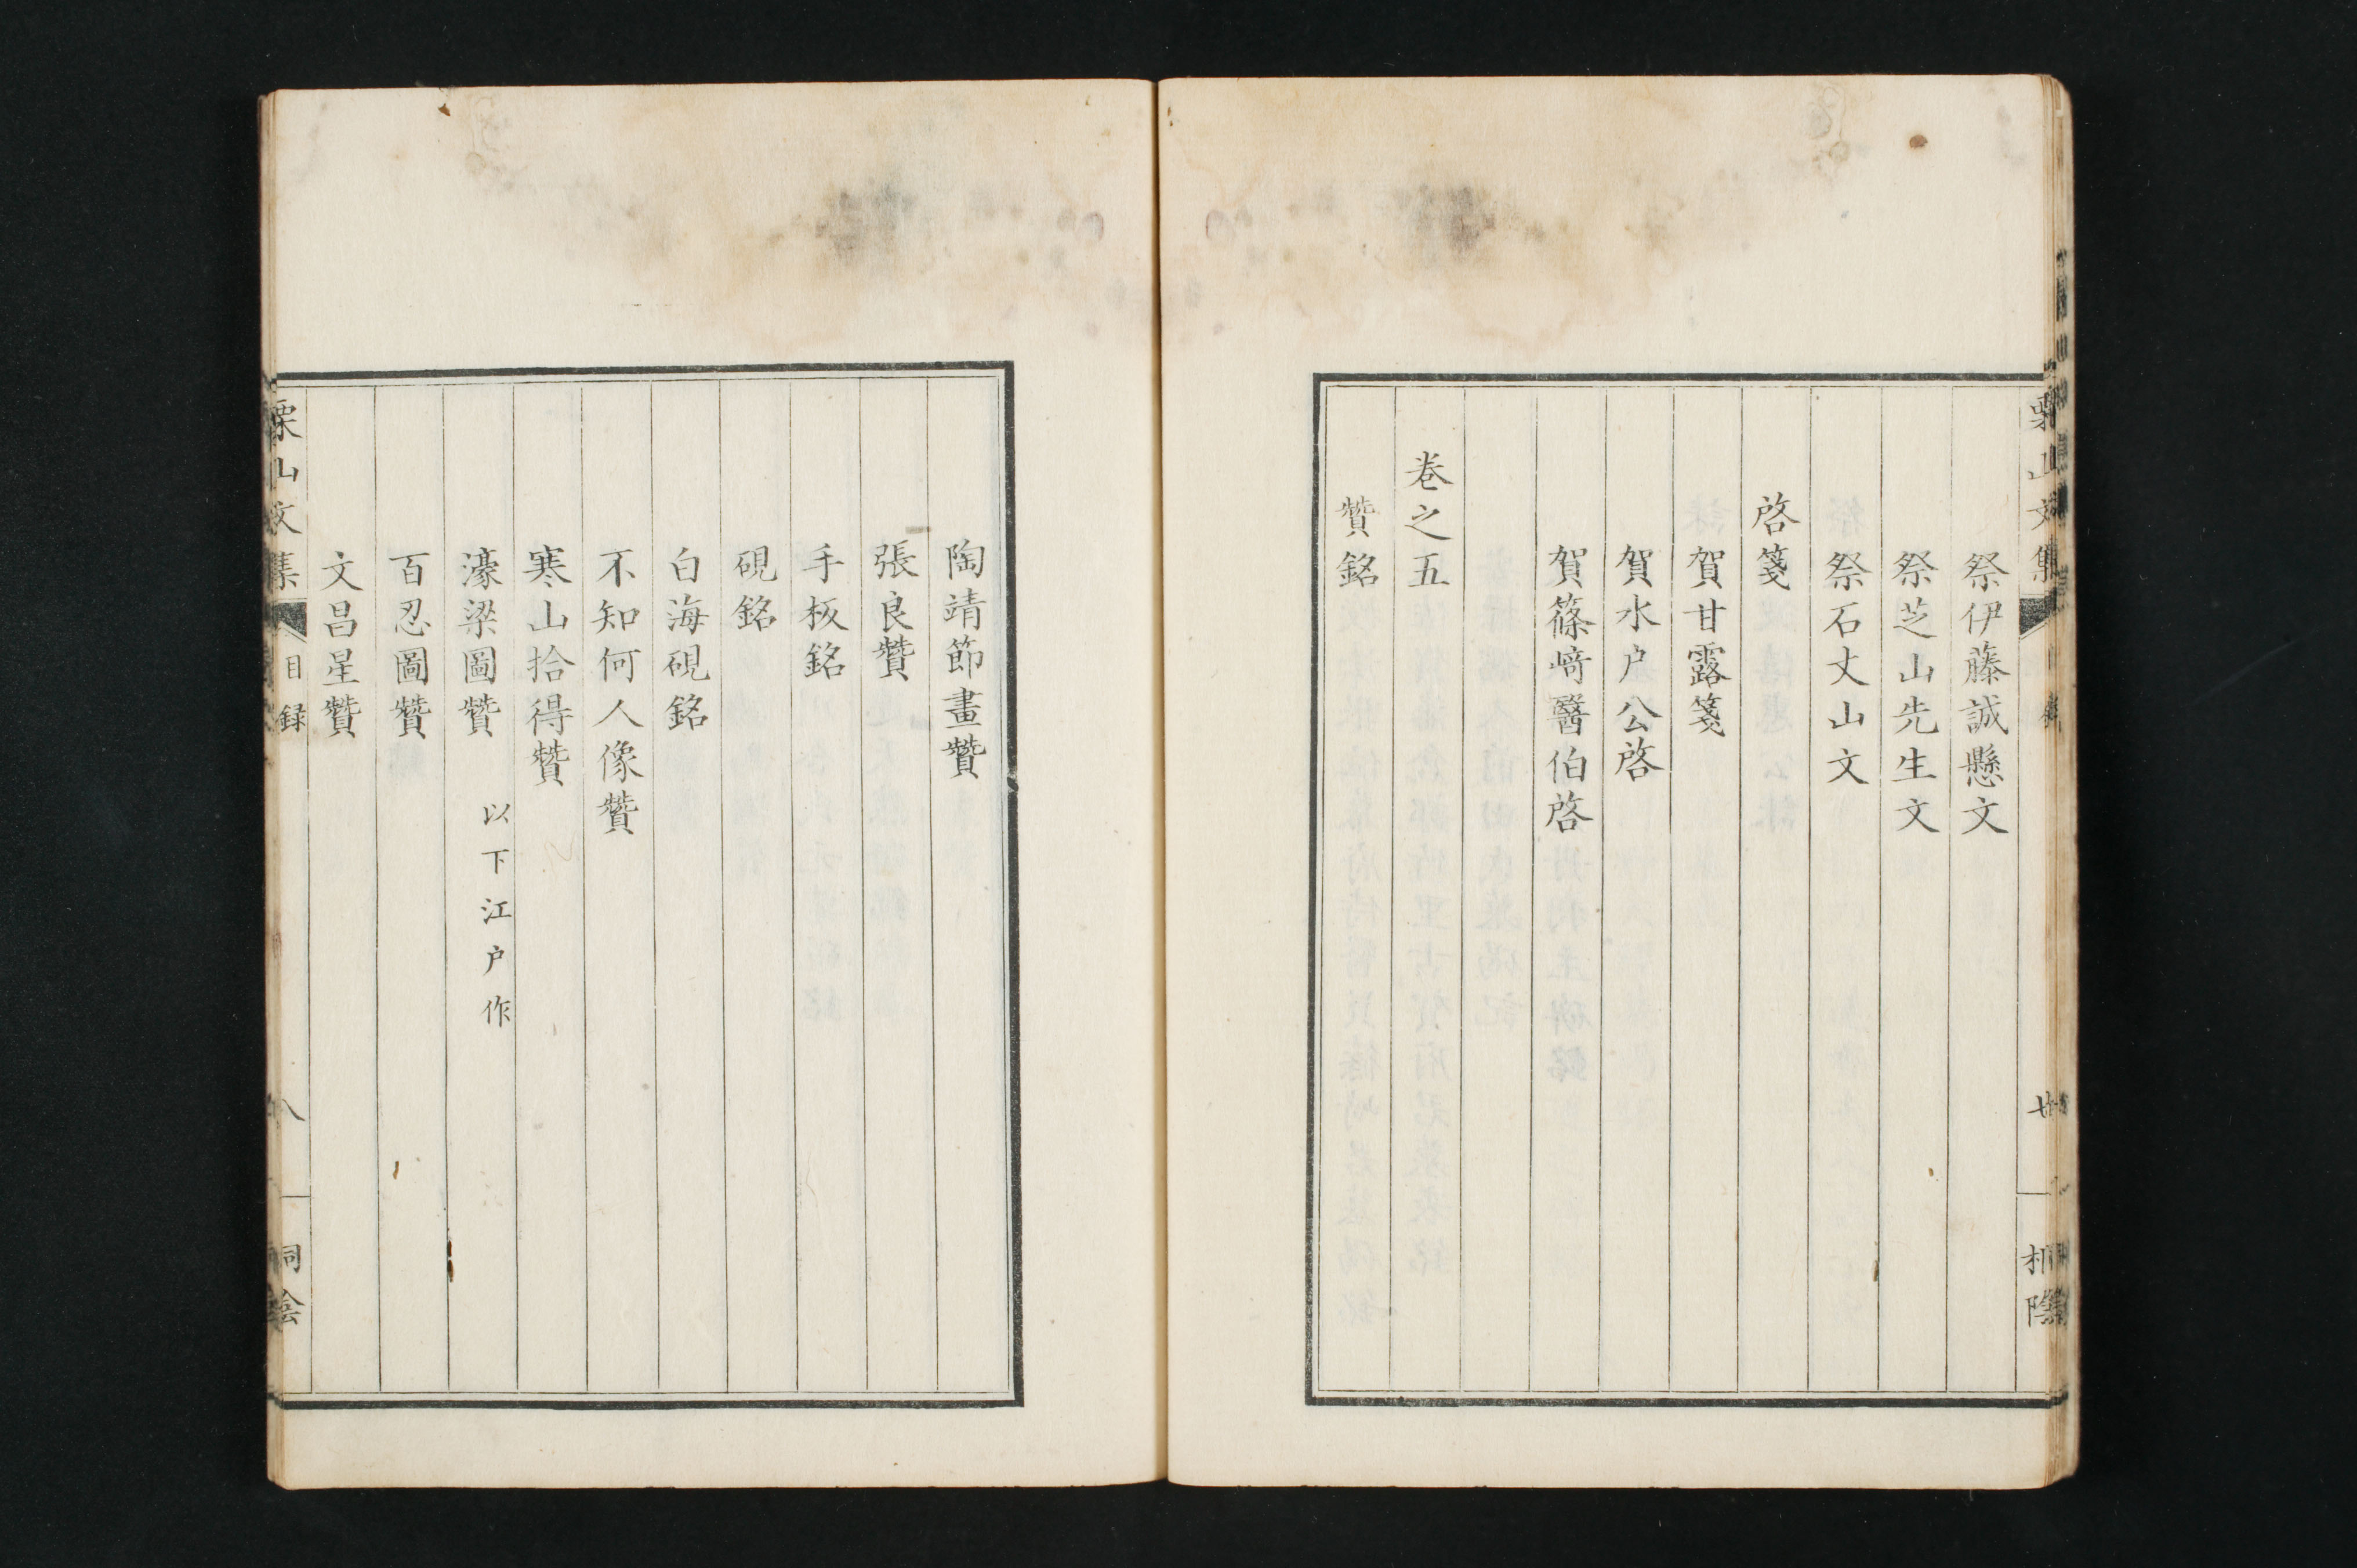 祭伊藤誠懸文
祭芝山先生文
祭石丈山文
啓箋
賀甘露箋
賀水户公啓
賀篠﨑醫伯啓
卷之五
贊銘
陶靖節畫贊
張良贊
手板銘
硯銘
白海硯銘
不知何人像贊
寒山拾得贊
濠梁圖贊 以下江户作
百忍圖贊
文昌星贊
栗山文集 目録 八